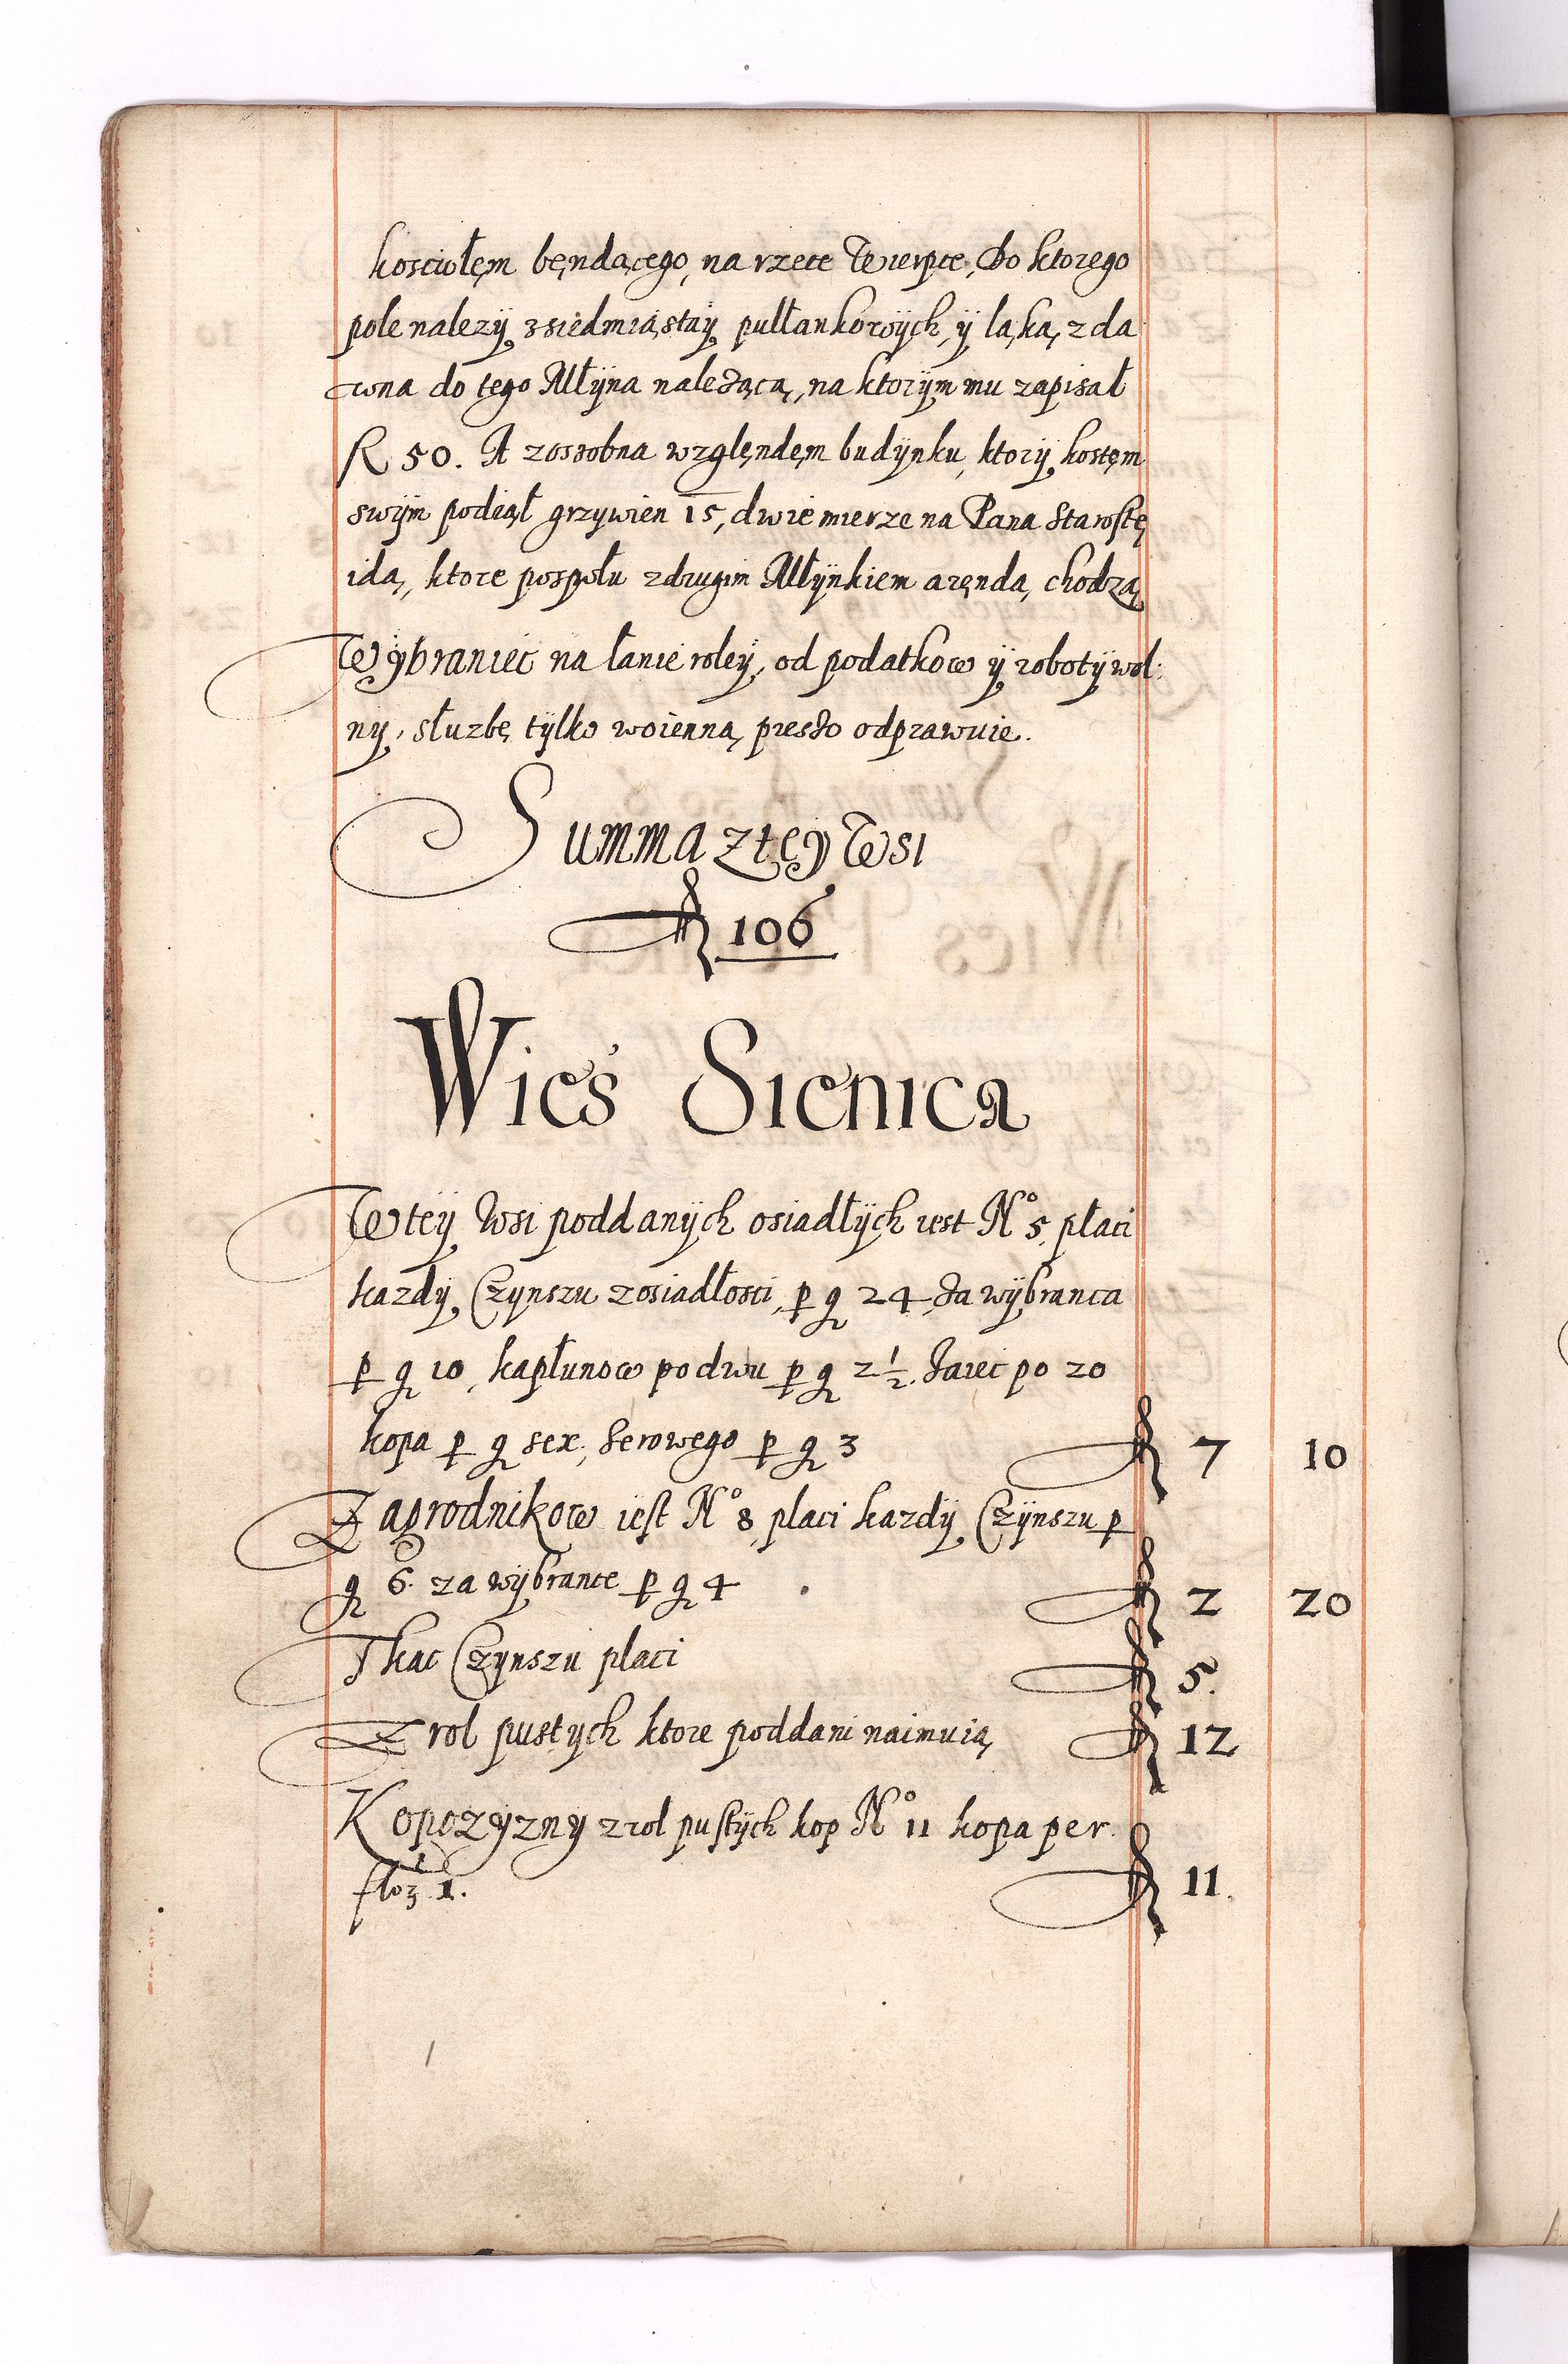 kosciołęm będącego, na rzece Wierpce, Do ktorego
pole nalezÿ z siedmią staÿ pułłankowÿch, ÿ ląką, z da
wna do tego Młÿna należącą, na ktorÿm mu zapisał
fl 50. A zossobna wzglęndęm budÿnku, ktorÿ kostęm
swÿm podiął grzywien 15, dwie mierze na Pana Starostę
idą, ktore pospołu z drugim Młÿnkiem aręndą, chodzą
Wybraniec na łanie roleÿ, od podatkow ÿ robotÿ wol:
ny, służbę tÿlko woienną, presto odprawuie.
Summa z tey Wsi
fl 106
Wieś Sienica
W teÿ Wsi poddanÿch osiadłÿch iest No 5, płaci
kazdÿ Czynszu z osiadłosci, p g 24, Za wÿbranca
p g 10, kapłunow po dwu p g 2 1/2. Jaiec po 20
kopa p g sex, Serowego p g 3 fl 7 10
Zagrodnikow iest No 8, placi kazdÿ Czÿnszu p
g 6. za wÿbrance p g 4 fl 2 20
Tkac Czynszu placi fl 5.
Z rol pustych ktore poddani naimuią fl 12
Kopczyzny z rol pustÿch kop No 11 kopa per
flor 1. fl 11.